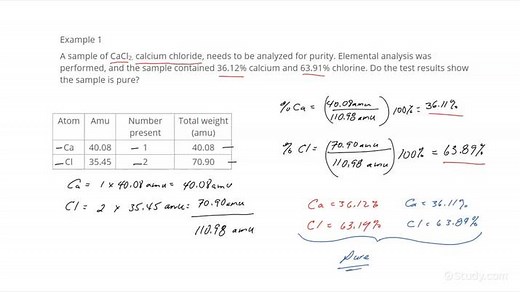 Example 1
A sample of CaCl₂, calcium chloride, needs to be analyzed for purity. Elemental analysis was
performed, and the sample contained 36.12% calcium and 63.91% chlorine. Do the test results show
the sample is pure?
Atom Amu Number present Total weight (amu)
Ca 40.08 1 40.08
Cl 35.45 2 70.90
Ca = 1 x 40.08 amu = 40.08 amu
Cl = 2 x 35.45 amu = 70.90 amu
110.98 amu
% Ca = (40.08 amu / 110.98 amu) 100% = 36.11%
% Cl = (70.90 amu / 110.98 amu) 100% = 63.89%
Ca = 36.12% Ca = 36.11%
Cl = 63.19% Cl = 63.89%
Pure
Study.com